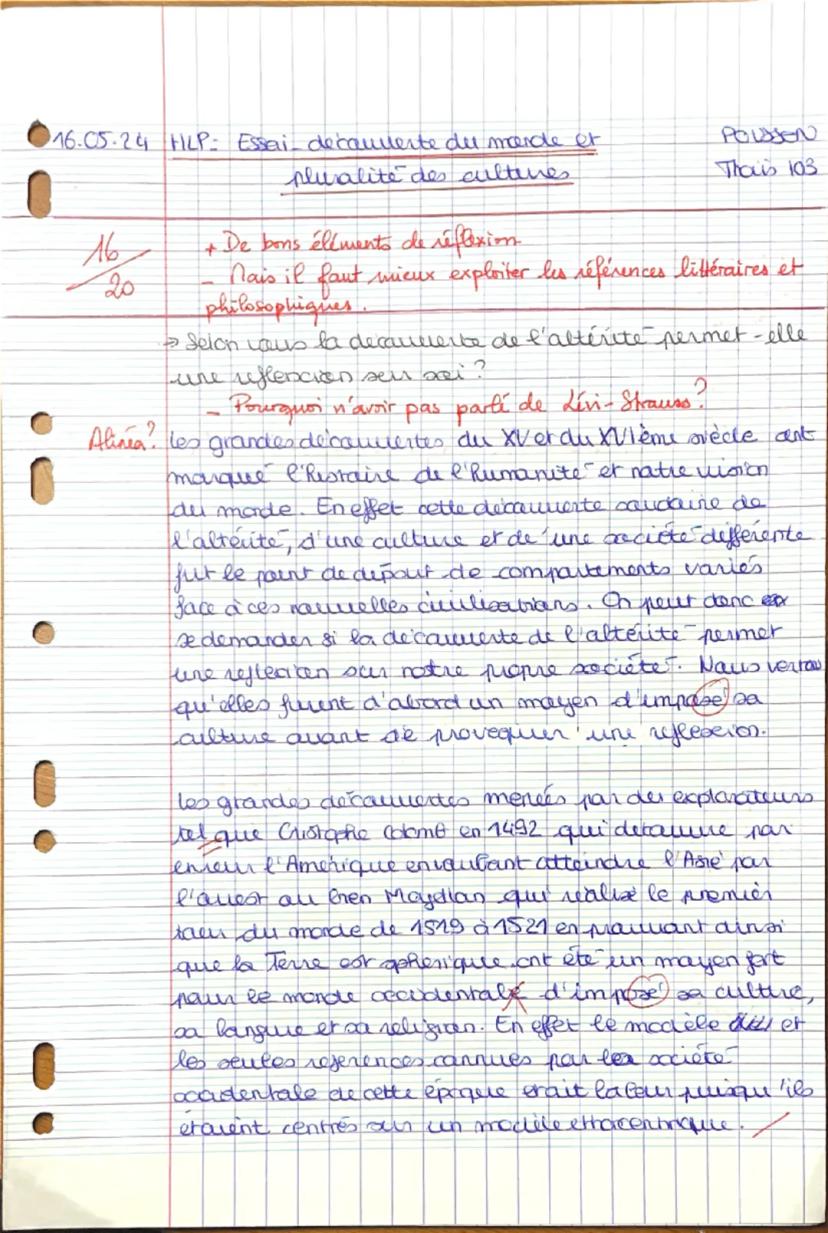 16.05.24 HLP: Essai - découverte du monde et POUSSEN
pluralité des cultures Thaïs 103
16/20 + De bons éléments de réflexion
- Mais il faut mieux exploiter les références littéraires et
philosophiques.
→ Selon vous la découverte de l'altérité permet-elle
une reflexion sur soi ?
- Pourquoi n'avoir pas parlé de Lévi-Strauss ?
Alinéa ? les grandes découvertes du XV et du XVIème siècle ont
marqué l'histoire de l'humanité et notre vision
du monde. En effet cette découverte soudaine de
l'altérité, d'une culture et de une société différente
fut le point de départ de comportements variés
face à ces nouvelles civilisations. On peut donc
se demander si la découverte de l'altérité permet
une reflexion sur notre propre société. Nous verrons
qu'elles furent d'abord un moyen d'imposé sa
culture avant de provoquer une reflexion.
les grandes découvertes menées par des explorateurs
tel que Cristophe Colomb en 1492 qui découvre par
erreur l'Amérique en voulant atteindre l'Asie par
l'ouest ou bien Magellan qui réalise le premier
tour du monde de 1519 à 1521 en prouvant ainsi
que la Terre est spherique ont été un moyen fort
pour le monde occidental d'imposé sa culture,
sa langue et sa religion. En effet le modèle et
les seules references connues par la société
occidentale de cette époque était la leur puisqu'ils
étaient centrés sur un modèle ethnocentrique.